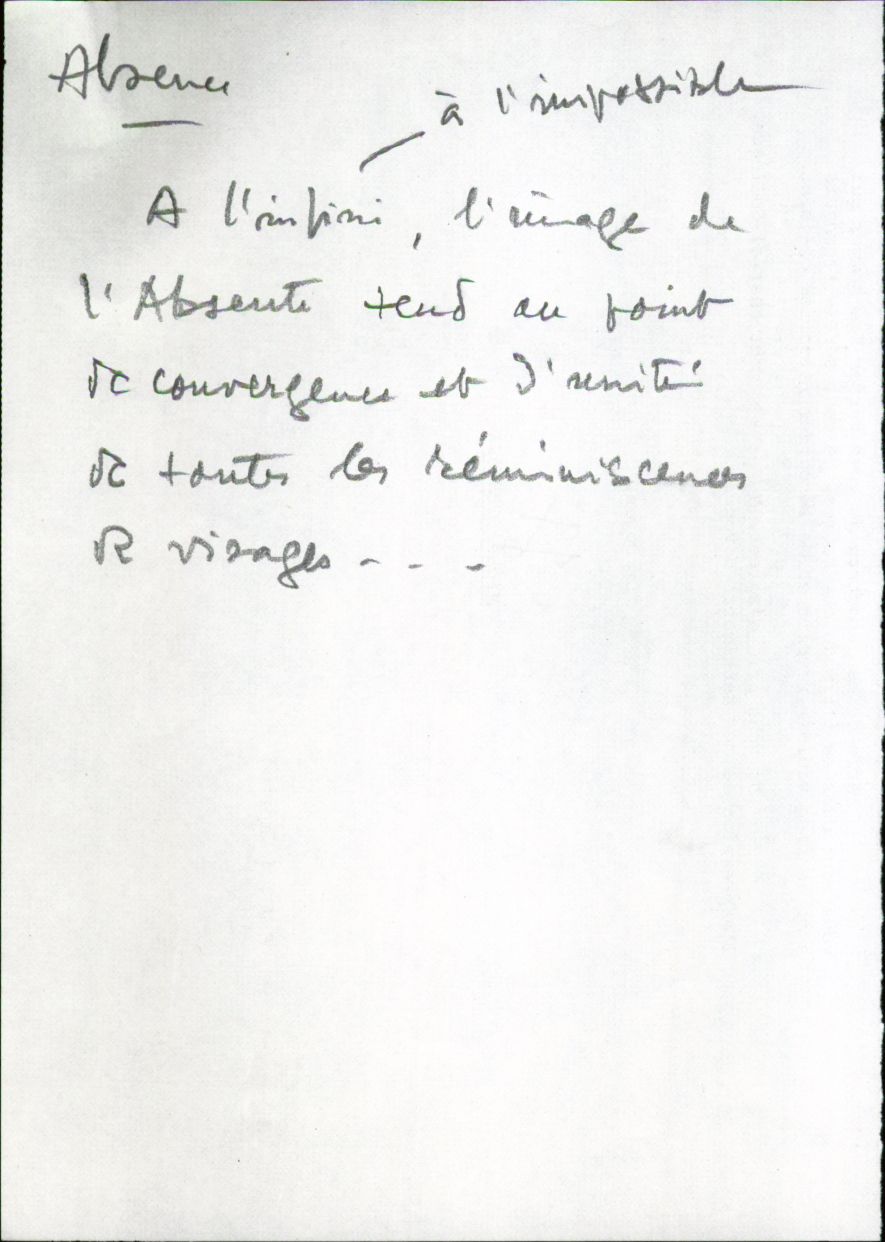 Absence
à l'impossible
A l'infini, l'image de
l'Absente tend au point
de convergence et d'unité
de toutes les réminiscences
de visages - - -